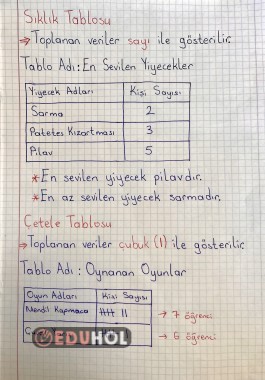 Sıklık Tablosu
⇒ Toplanan veriler sayı ile gösterilir.
Tablo Adı: En Sevilen Yiyecekler
Yiyecek Adları Kişi Sayısı
Sarma 2
Patates Kızartması 3
Pilav 5
* En sevilen yiyecek pilavdır.
* En az sevilen yiyecek sarmadır.
Çetele Tablosu
⇒ Toplanan veriler çubuk (|) ile gösterilir.
Tablo Adı: Oynanan Oyunlar
Oyun Adları Kişi Sayısı
Mendil Kapmaca 卌 || → 7 öğrenci
→ 6 öğrenci
EDUHOL